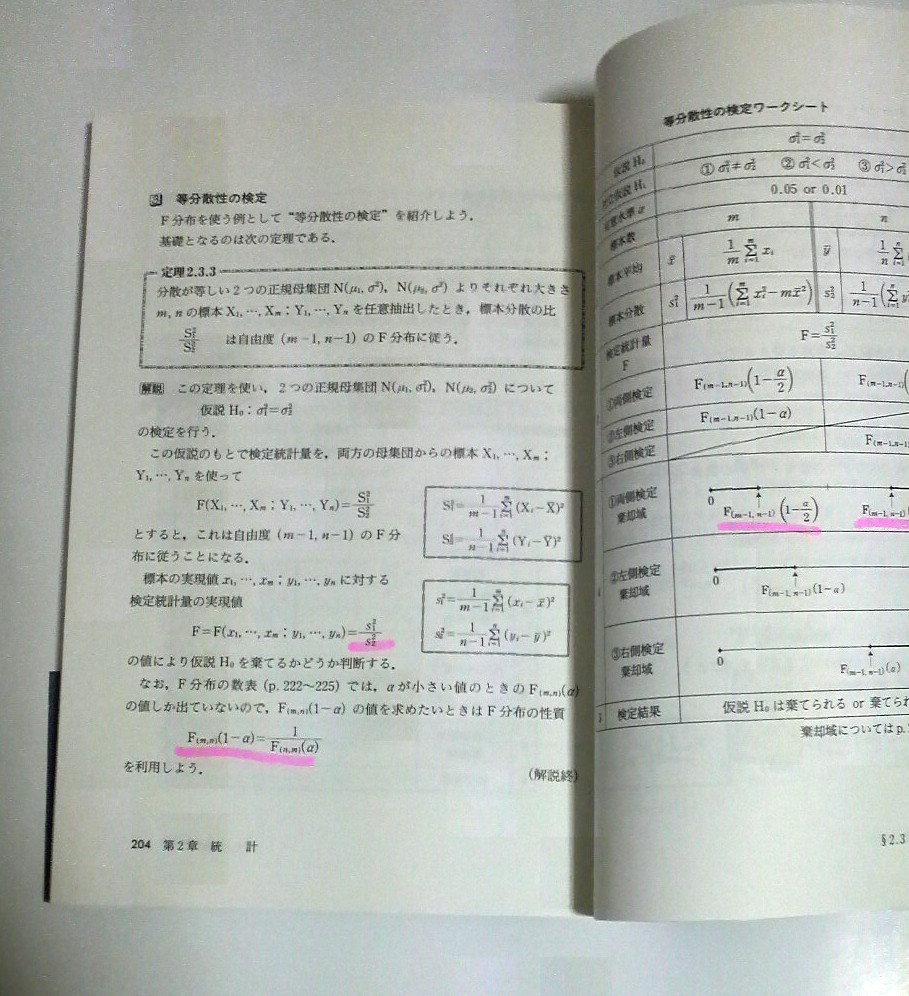 ③ 等分散性の検定
F分布を使う例として“等分散性の検定”を紹介しよう.
基礎となるのは次の定理である.
定理2.3.3
分散が等しい2つの正規母集団 N(μ₁, σ²), N(μ₂, σ²) よりそれぞれ大きさ
m, n の標本 X₁, …, Xₘ ; Y₁, …, Yₙ を任意抽出したとき, 標本分散の比
S₁²/S₂² は自由度 (m−1, n−1) のF分布に従う.
解説 この定理を使い, 2つの正規母集団 N(μ₁, σ₁²), N(μ₂, σ₂²) について
仮説 H₀ : σ₁²=σ₂²
の検定を行う.
この仮説のもとで検定統計量を, 両方の母集団からの標本 X₁, …, Xₘ ;
Y₁, …, Yₙ を使って
F(X₁, …, Xₘ ; Y₁, …, Yₙ)=S₁²/S₂²
S₁²=1/(m−1) Σᵢ₌₁ᵐ (Xᵢ−X̄)²
S₂²=1/(n−1) Σᵢ₌₁ⁿ (Yᵢ−Ȳ)²
とすると, これは自由度 (m−1, n−1) のF分
布に従うことになる.
標本の実現値 x₁, …, xₘ ; y₁, …, yₙ に対する
検定統計量の実現値
F=F(x₁, …, xₘ ; y₁, …, yₙ)=s₁²/s₂²
s₁²=1/(m−1) Σᵢ₌₁ᵐ (xᵢ−x̄)²
s₂²=1/(n−1) Σᵢ₌₁ⁿ (yᵢ−ȳ)²
の値により仮説 H₀ を棄てるかどうか判断する.
なお, F分布の数表 (p. 222〜225) では, α が小さい値のときの F(m,n)(α)
の値しか出ていないので, F(m,n)(1−α) の値を求めたいときはF分布の性質
F(m,n)(1−α)=1/F(n,m)(α)
を利用しよう.
(解説終)
204 第2章 統 計
等分散性の検定ワークシート
仮説 H₀ σ₁²=σ₂²
仮説 H₁ ① σ₁²≠σ₂² ② σ₁²<σ₂² ③ σ₁²>σ₂²
水準 α 0.05 or 0.01
標本数 m n
標本平均 x̄ 1/m Σᵢ₌₁ᵐ xᵢ ȳ 1/n Σᵢ₌₁
標本分散 s₁² 1/(m−1) (Σᵢ₌₁ᵐ xᵢ²−mx̄²) s₂² 1/(n−1) (Σᵢ₌₁ⁿ y
検定統計量
F
F=s₁²/s₂²
①両側検定 F(m−1,n−1)(1−α/2) F(m−1,n−1)
②左側検定 F(m−1,n−1)(1−α)
③右側検定 F(m−1,n−1)
①両側検定
棄却域
0 F(m−1, n−1)(1−α/2) F(m−1, n−1)
②左側検定
棄却域
0 F(m−1, n−1)(1−α)
③右側検定
棄却域
0 F(m−1, n−1)(α)
5 検定結果 仮説 H₀ は棄てられる or 棄てられ
棄却域についてはp.
§2.3